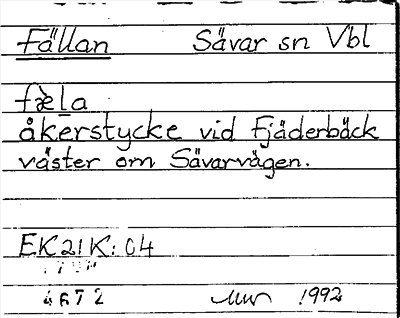 Fällan Sävar sn Vbl
fæ̀la
åkerstycke vid Fjäderbäck
väster om Sävarvägen.
EK21K:04
4672 1992